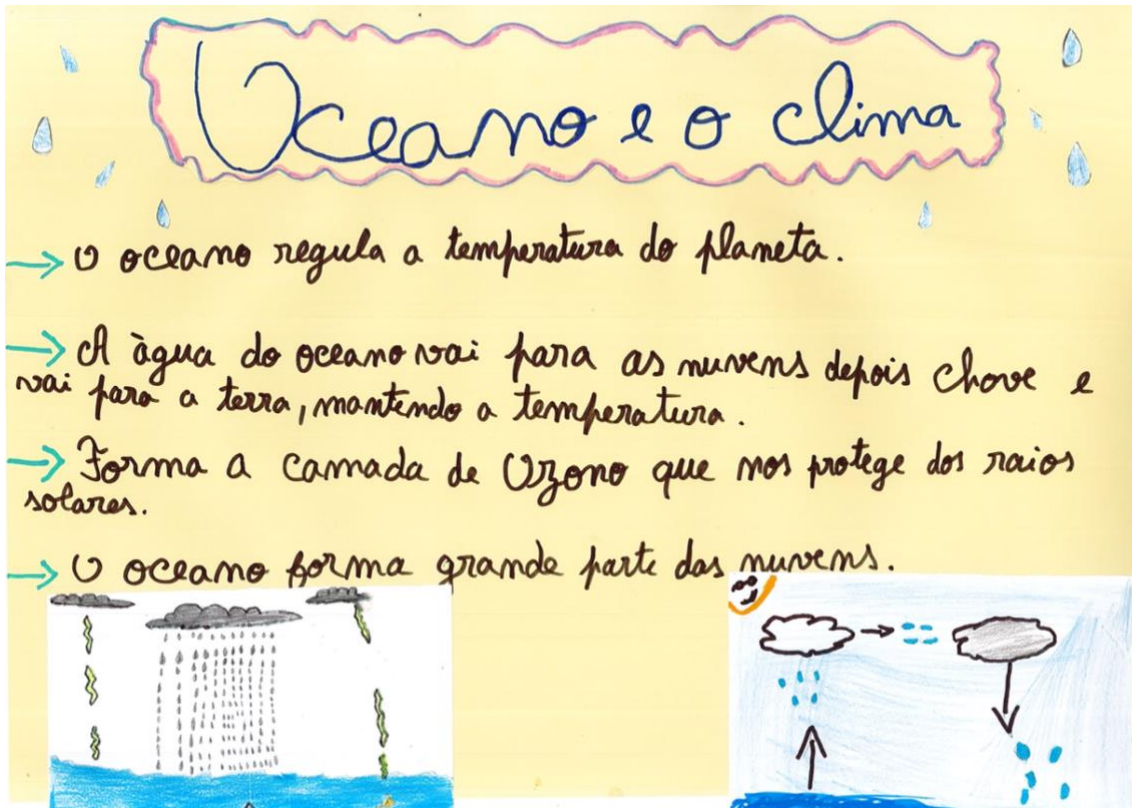 Oceano e o clima
→ O oceano regula a temperatura do planeta.
→ A àgua do oceano vai para as nuvens depois chove e
vai para a terra, mantendo a temperatura.
→ Forma a camada de Ozono que nos protege dos raios
solares.
→ O oceano forma grande parte das nuvens.